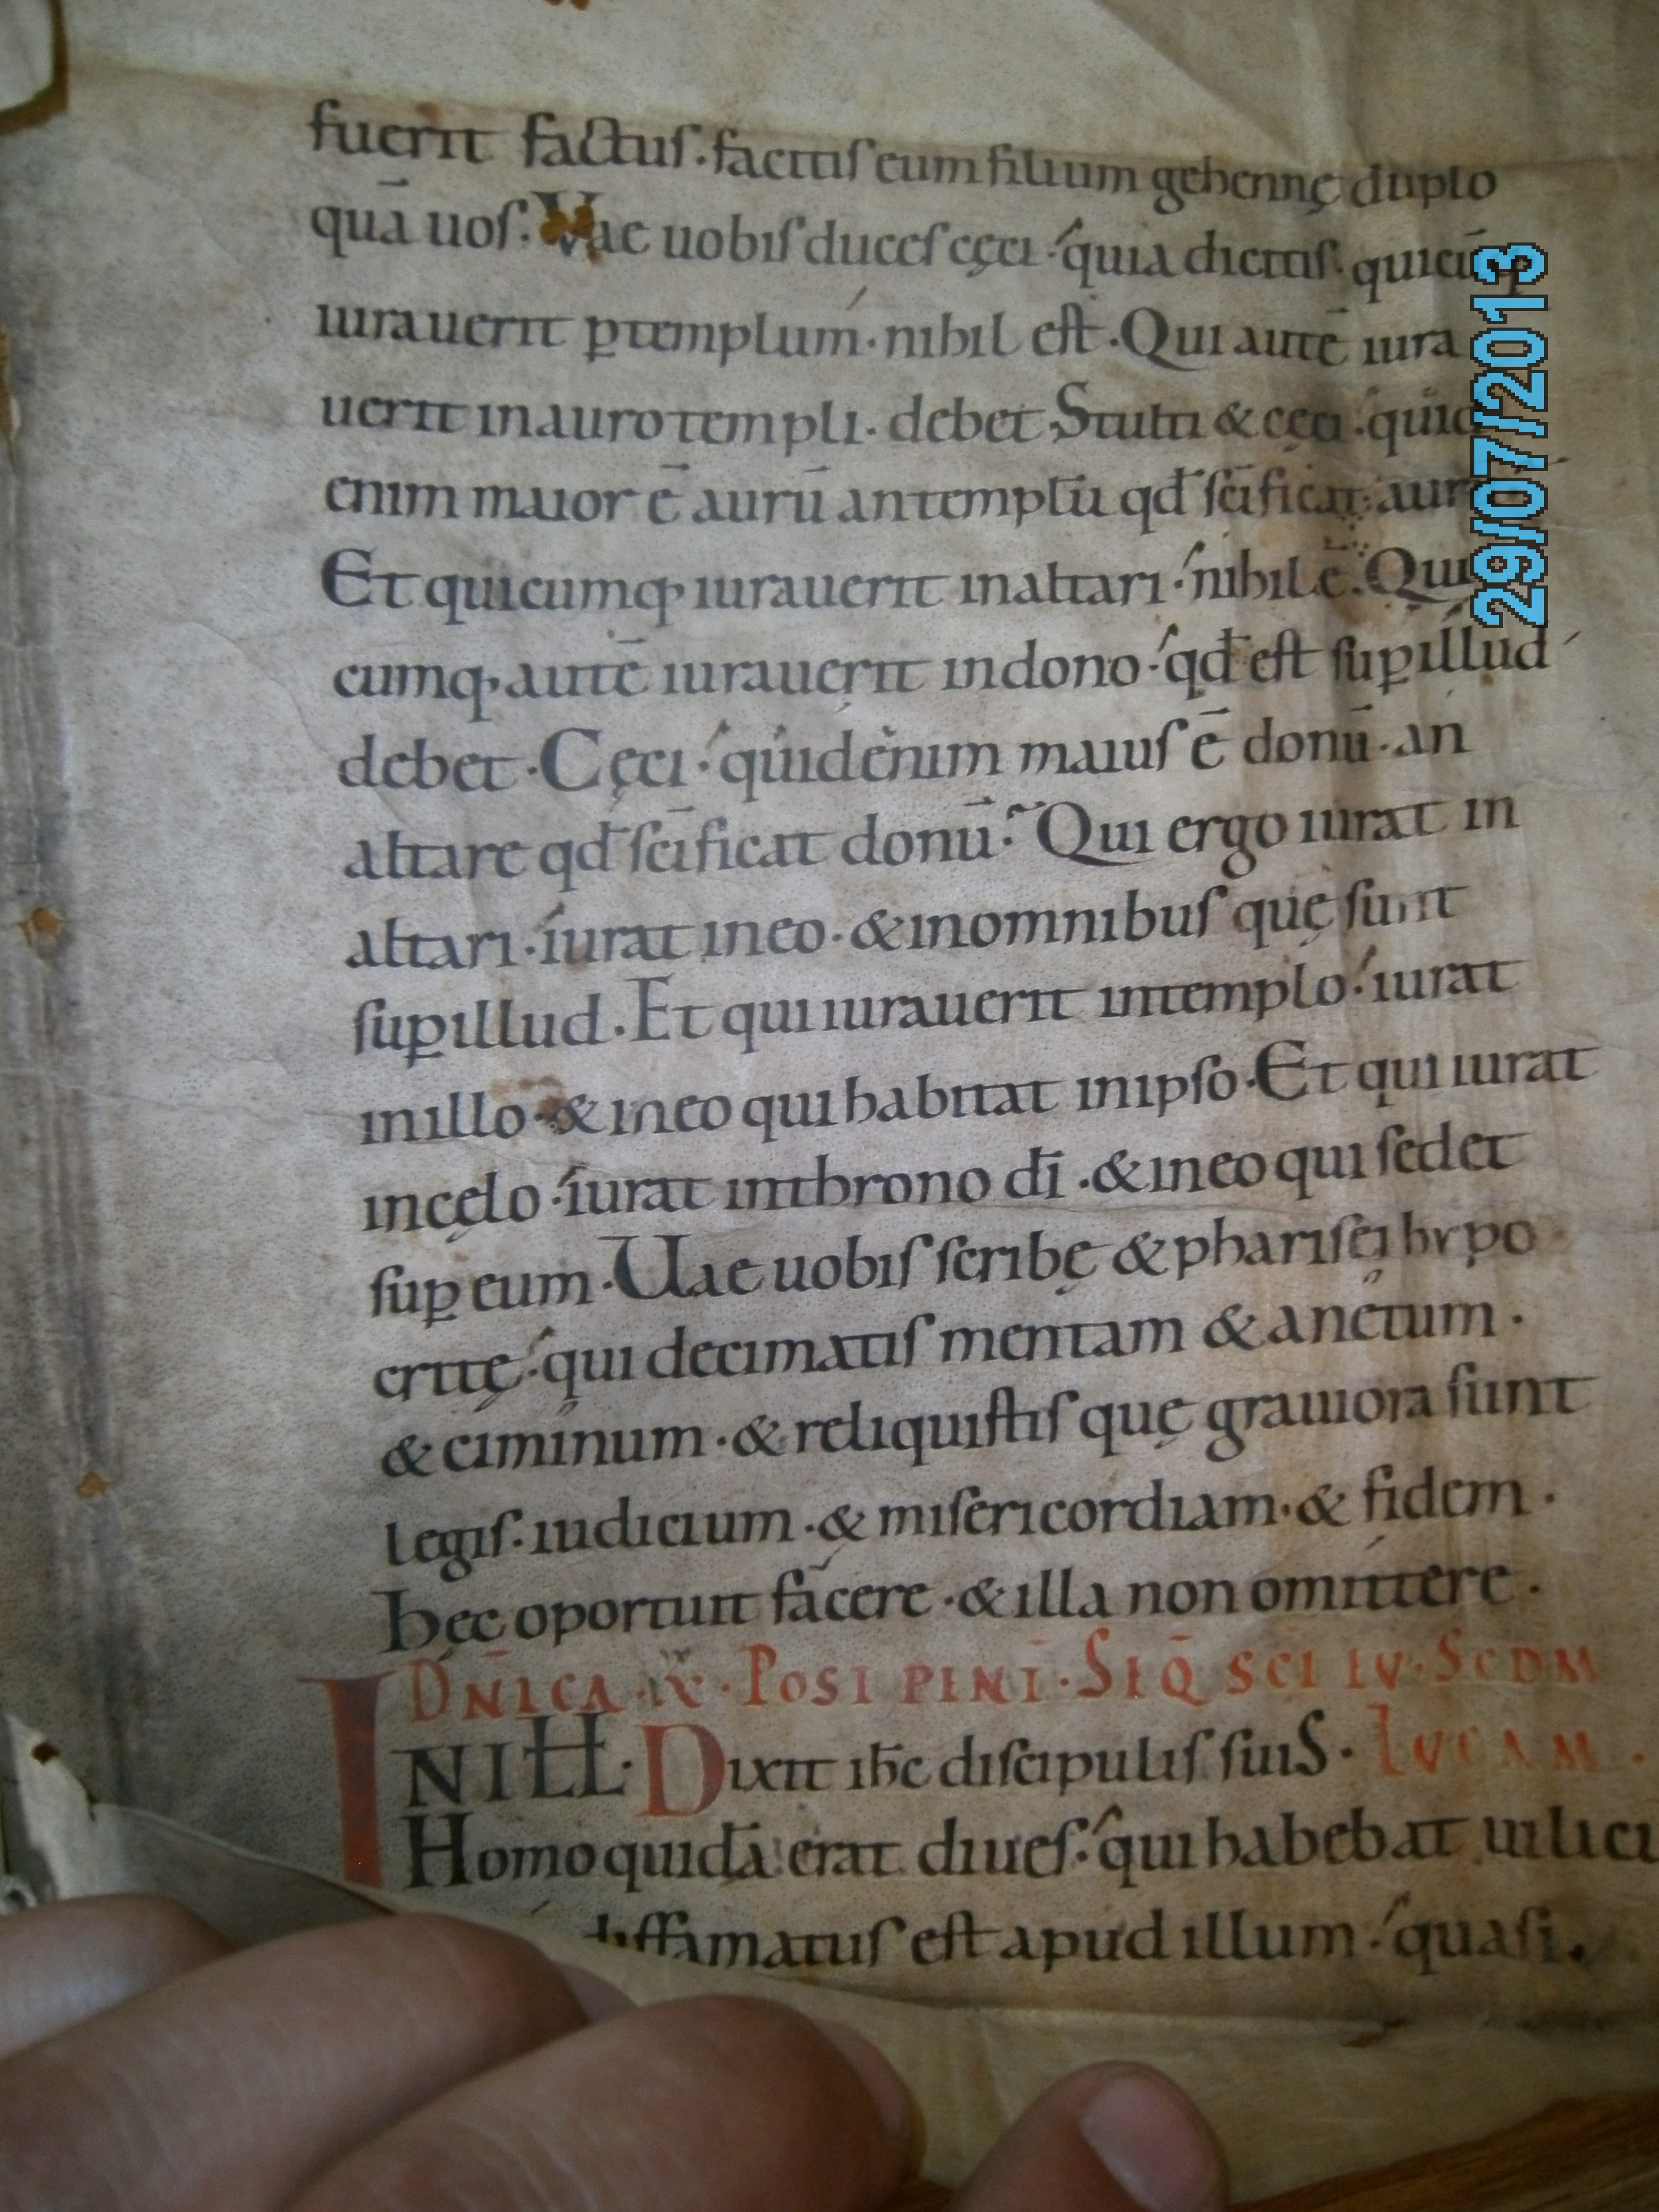 fuerit factus. facitis eum filium gehennę duplo
quā uos. Vae uobis duces cęci. quia dicitis. quicū
iurauerit ꝑ templum. nihil est. Qui autē iura
uerit in auro templi. debet. Stulti & cęci. quid
enim maior ē aurū an templū qđ sc̄ificat aur
Et quicumq; iurauerit in altari. nihil ē. Qui
cumq; autē iurauerit in dono. qđ est suꝑ illud
debet. Cęci. quid enim maius ē donū. an
altare qđ sc̄ificat donū. Qui ergo iurat in
altari. iurat in eo. & in omnibus quę sunt
suꝑ illud. Et qui iurauerit in templo. iurat
in illo. & in eo qui habitat in ipso. Et qui iurat
in cęlo. iurat in throno dī. & in eo qui sedet
suꝑ eum. Uae uobis scribę & pharisęi hypo
critę. qui decimatis mentam & anetum.
& ciminum. & reliquistis quę grauiora sunt
legis. iudicium. & misericordiam. & fidem.
Hęc oportuit facere. & illa non omittere.
DN̄ICA. IX. POST PENT̄. SEQ̄ SCI EV. SCDM
IN ILL. Dixit ihc discipulis suis. LUCAM.
Homo quidā erat diues. qui habebat uilici
diffamatus est apud illum. quasi.
29/07/2013